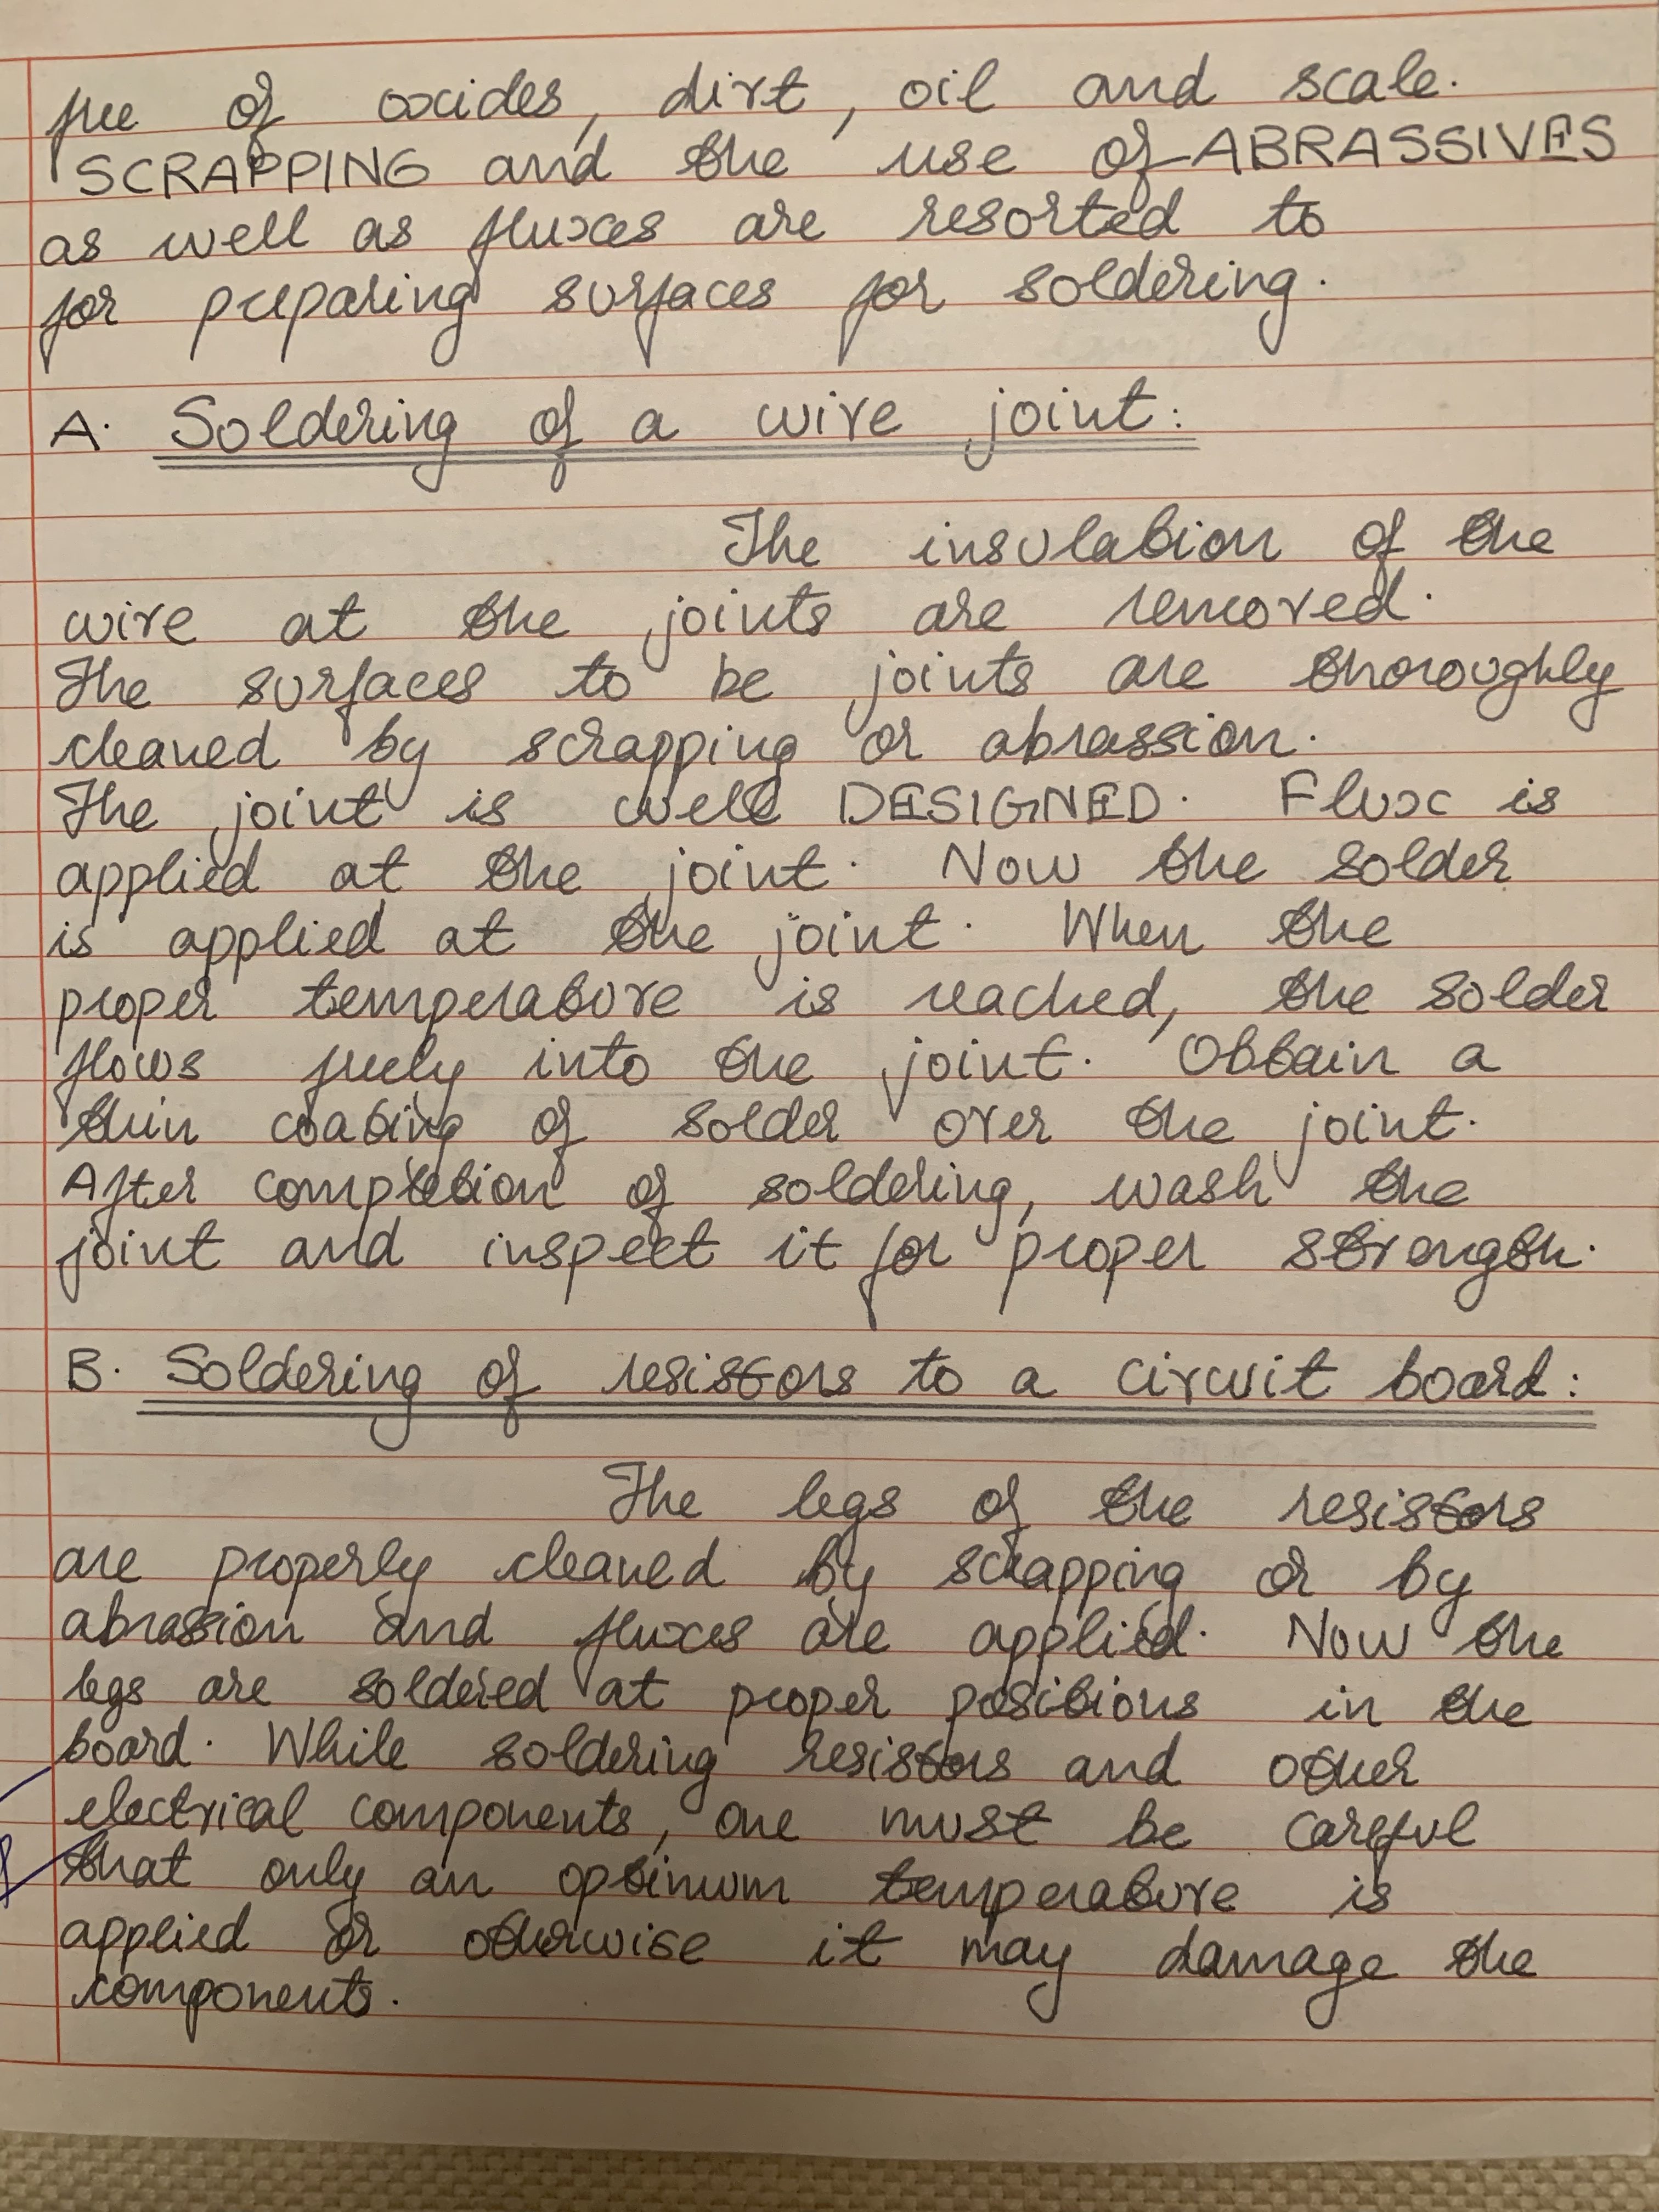 free of oxides, dirt, oil and scale.
SCRAPPING and the use of ABRASSIVES
as well as fluxes are resorted to
for preparing surfaces for soldering.
A. Soldering of a wire joint:
The insulation of the
wire at the joints are removed.
The surfaces to be joints are thoroughly
cleaned by scrapping or abrassion.
The joint is well DESIGNED. Flux is
applied at the joint. Now the solder
is applied at the joint. When the
proper temperature is reached, the solder
flows freely into the joint. Obtain a
thin coating of solder over the joint.
After completion of soldering, wash the
joint and inspect it for proper strength.
B. Soldering of resistors to a circuit board:
The legs of the resistors
are properly cleaned by scrapping or by
abrassion and fluxes are applied. Now the
legs are soldered at proper positions in the
board. While soldering resistors and other
electrical components, one must be careful
that only an optinum temperature is
applied or otherwise it may damage the
components.